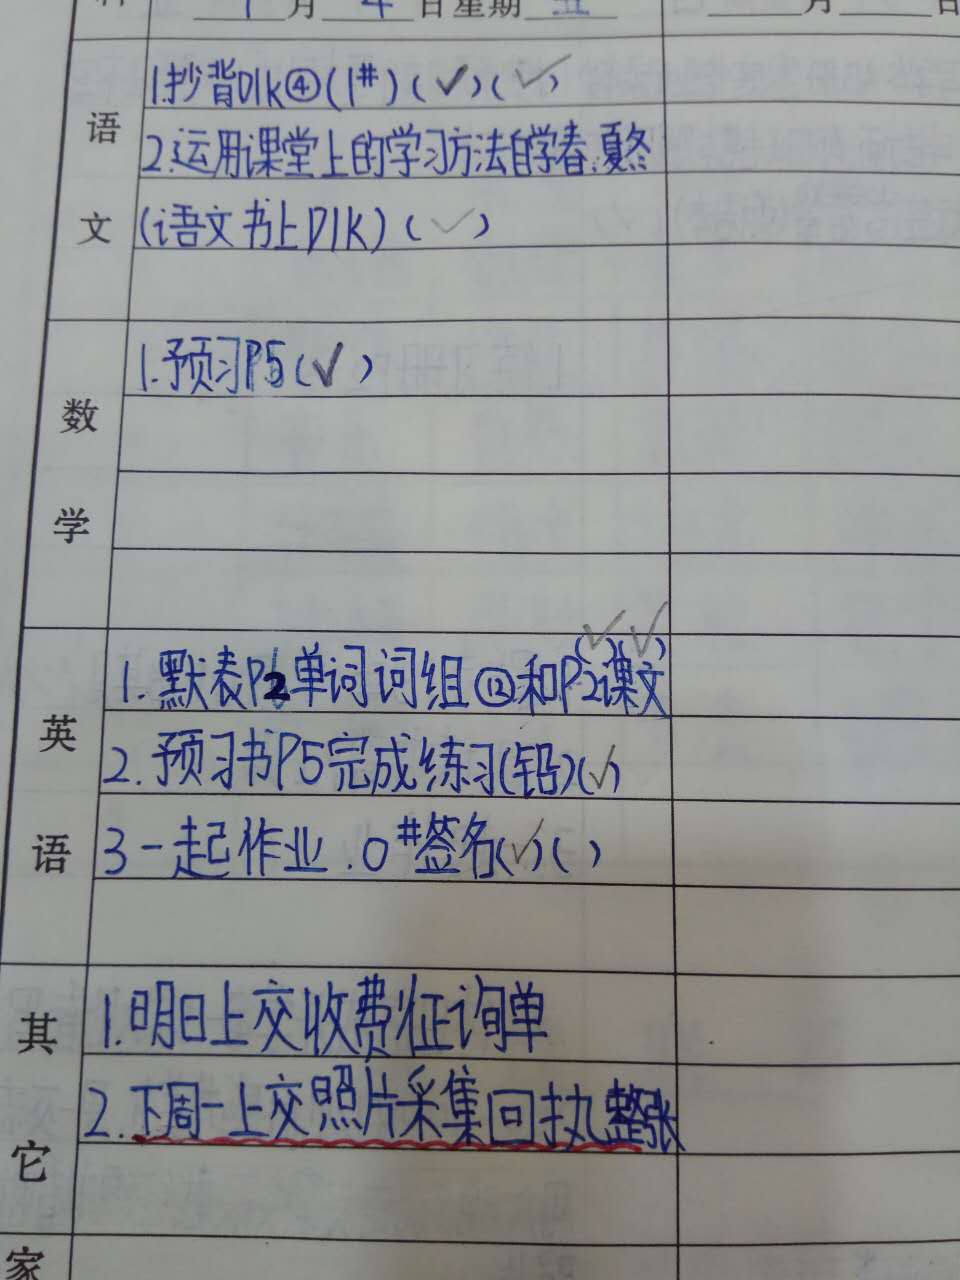 月 日星期 五 月 日
语文
1.抄背D1k④(1#)(✓)(✓)
2.运用课堂上的学习方法自学春.夏冬
(语文书上D1K)(✓)
数学
1.预习P5(✓)
英语
1.默表P2单词词组⑫和P2课文(✓)(✓)
2.预习书P5完成练习(铅)(✓)
3一起作业.0#签名(✓)( )
其它
1.明日上交收费征询单
2.下周一上交照片采集回执整张
家